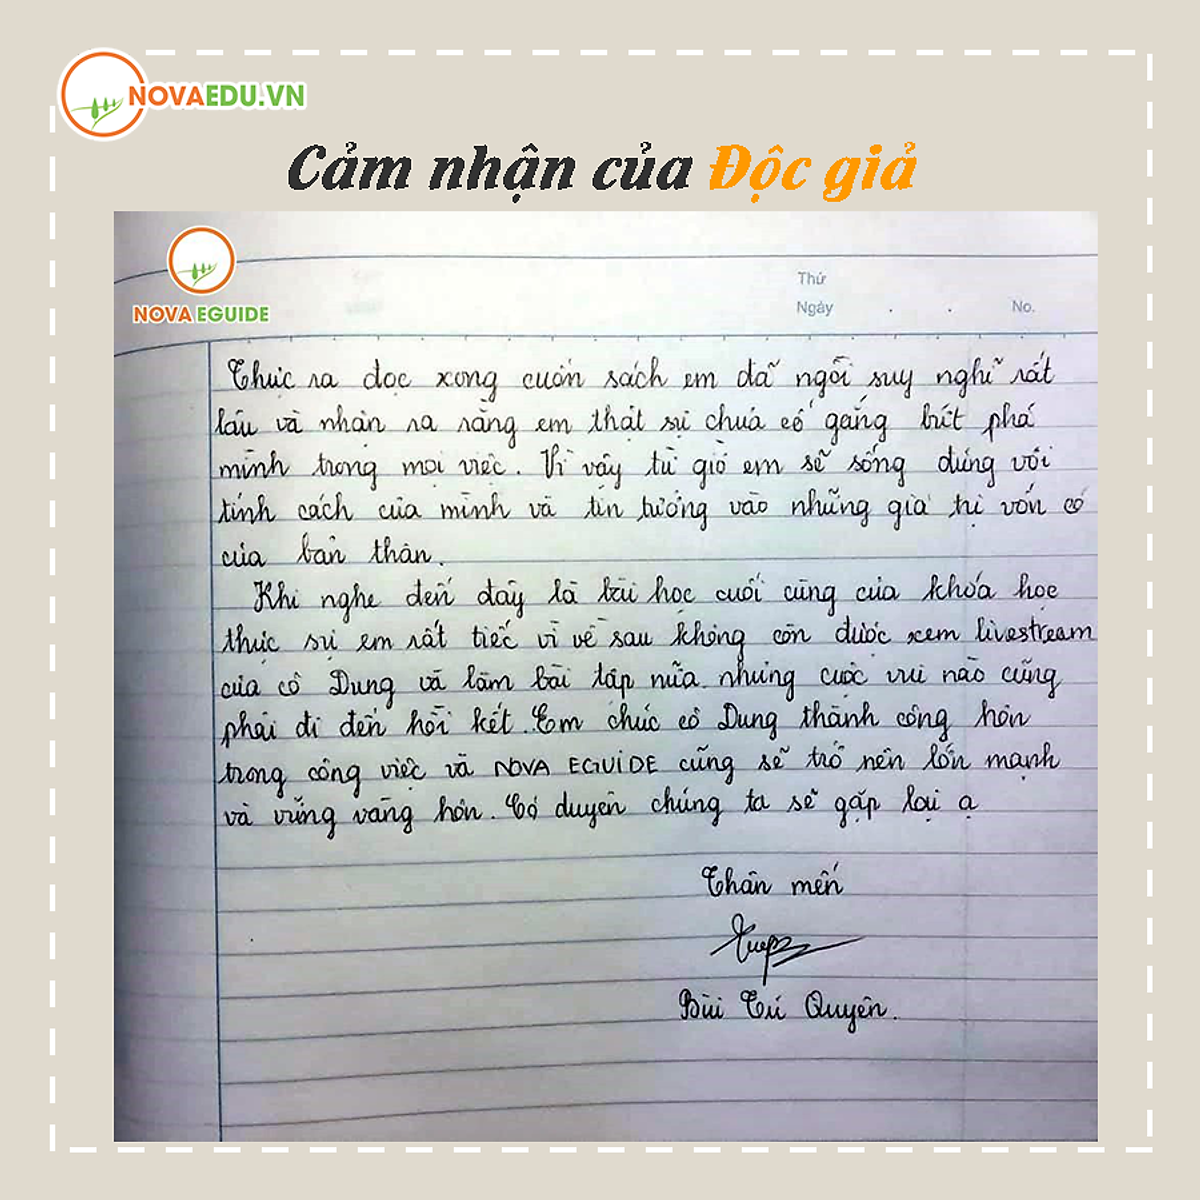 NOVAEDU.VN
Cảm nhận của Độc giả
NOVA EGUIDE
Thứ
Ngày . . No.
Thực ra đọc xong cuốn sách em đã ngồi suy nghĩ rất
lâu và nhận ra rằng em thật sự chưa cố gắng bứt phá
mình trong mọi việc. Vì vậy từ giờ em sẽ sống đúng với
tính cách của mình và tin tưởng vào những giá trị vốn có
của bản thân.
Khi nghe đến đây là bài học cuối cùng của khóa học
thực sự em rất tiếc vì về sau không còn được xem livestream
của cô Dung và làm bài tập nữa. nhưng cuộc vui nào cũng
phải đi đến hồi kết. Em chúc cô Dung thành công hơn
trong công việc và NOVA EGUIDE cũng sẽ trở nên lớn mạnh
và vững vàng hơn. Có duyên chúng ta sẽ gặp lại ạ
Thân mến
Bùi Tú Quyên.